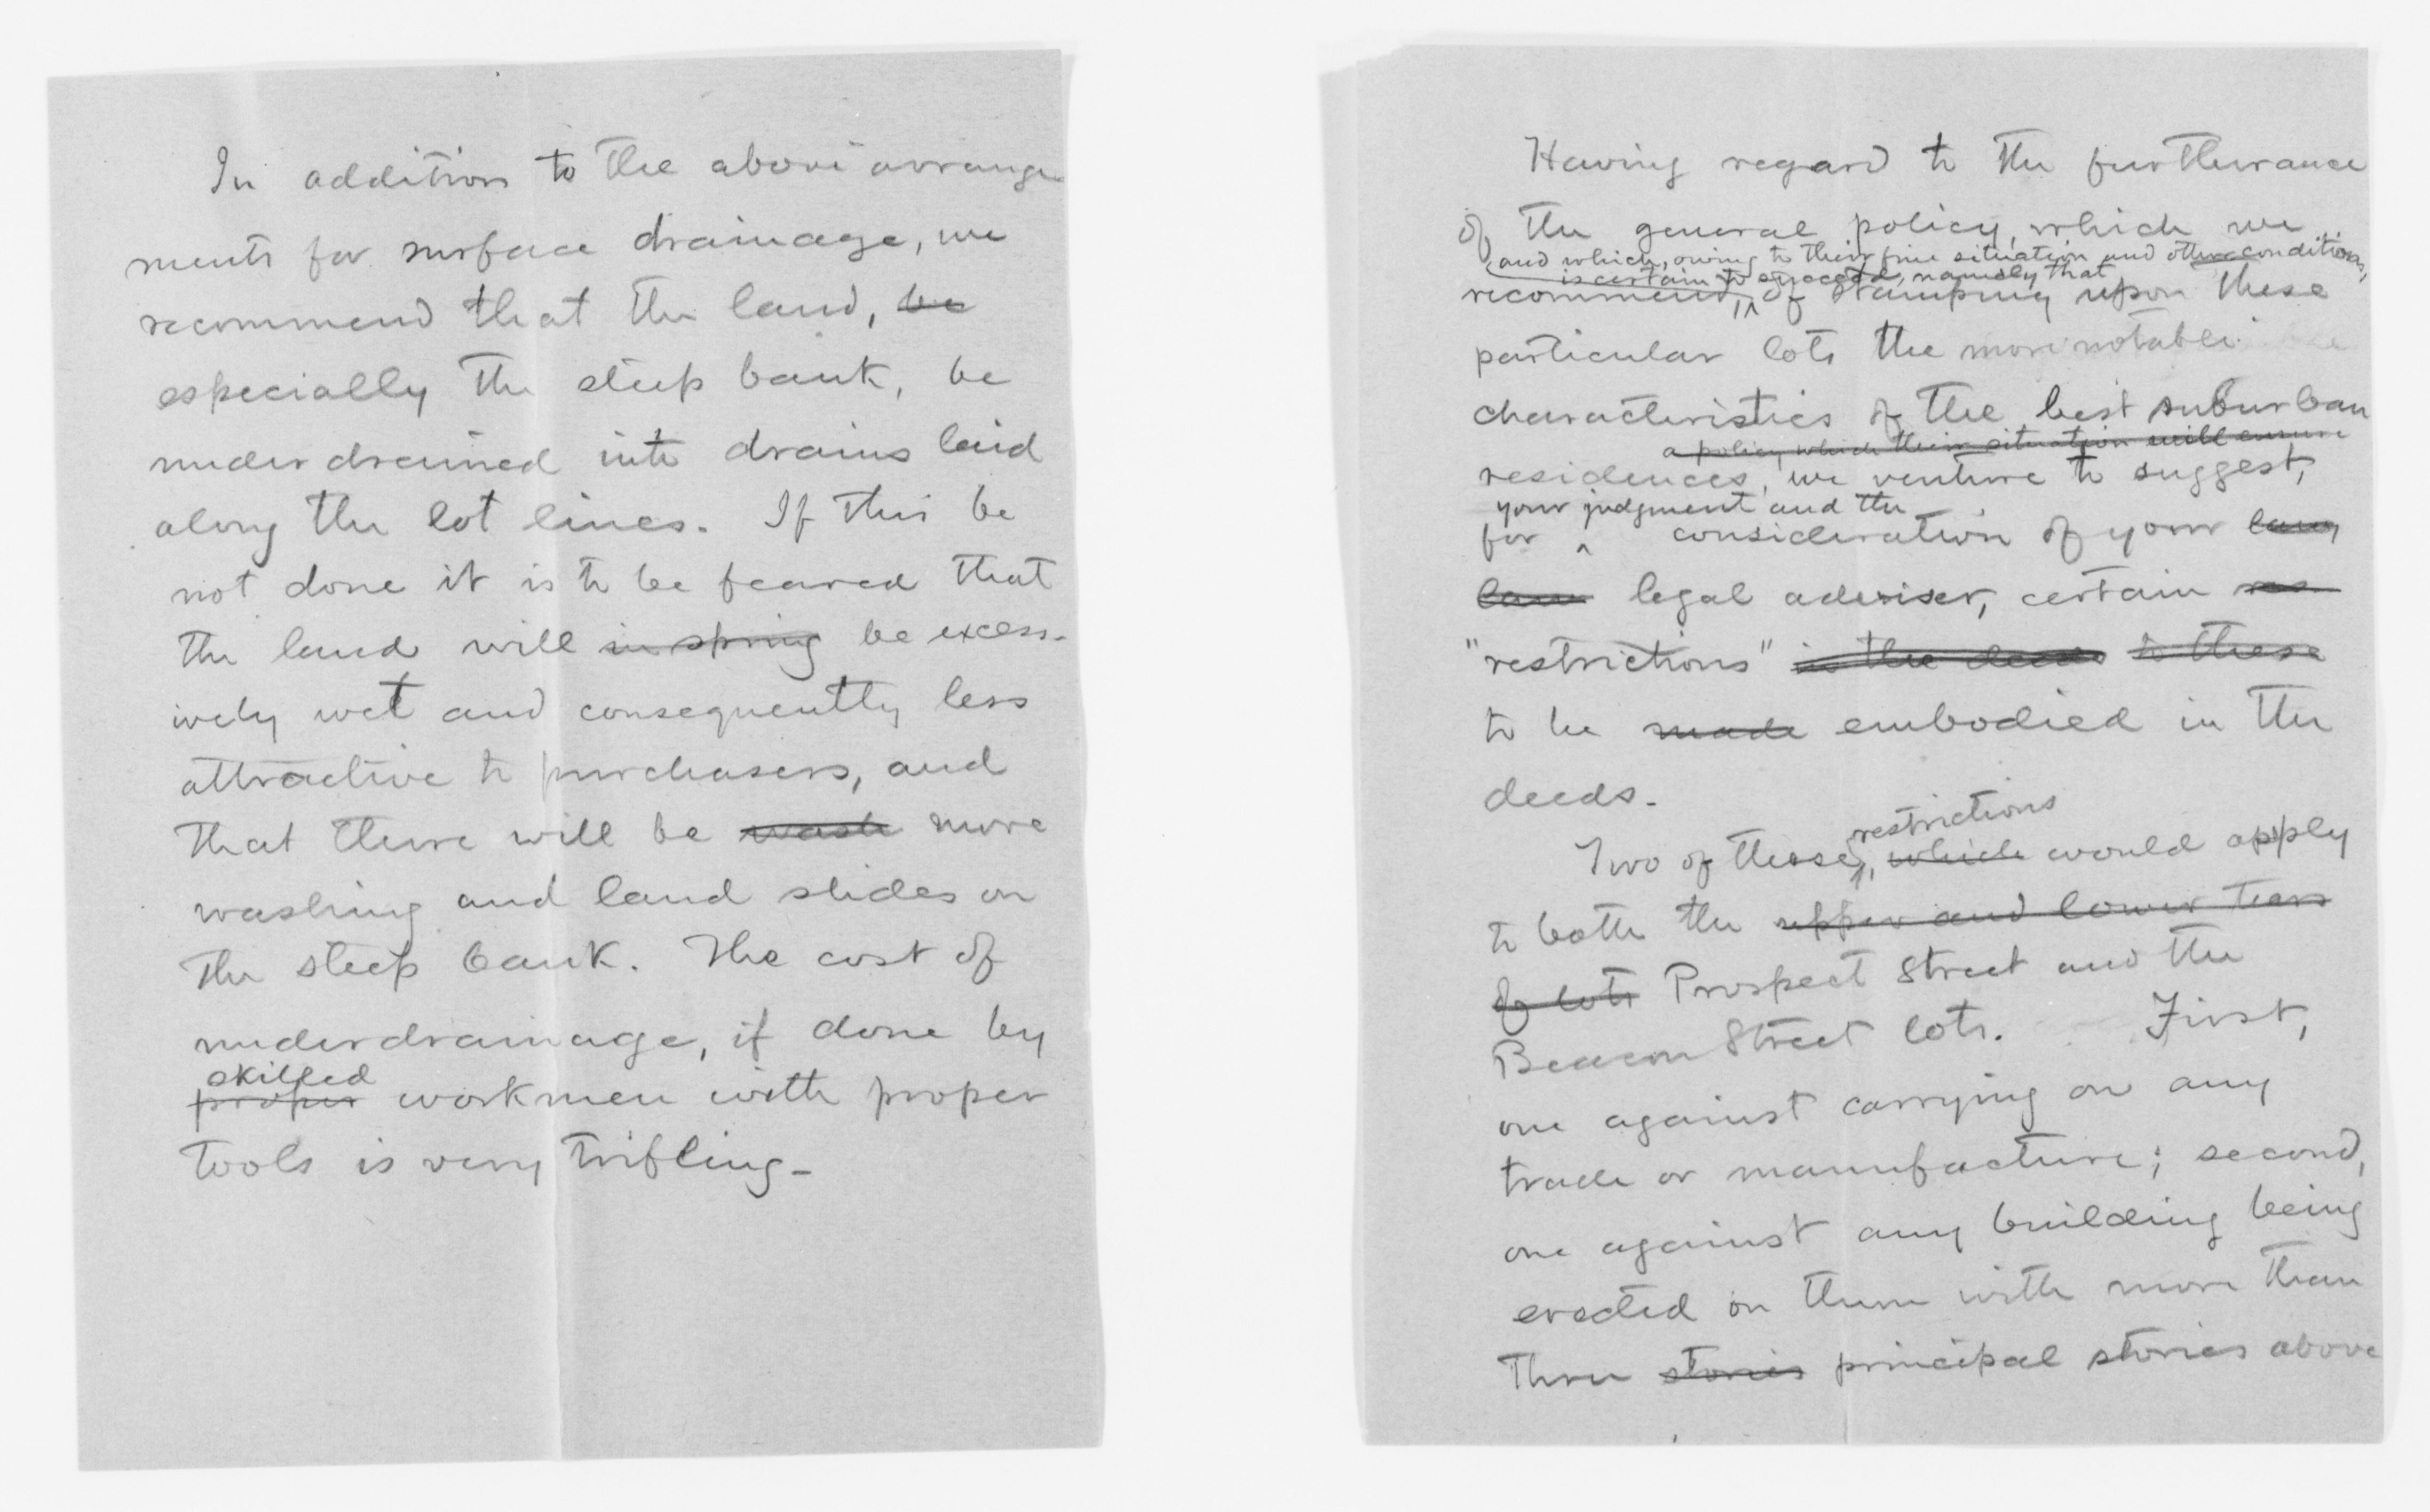 In addition to the above arrange
ments for surface drainage, we
recommend that the land, be
especially the steep bank, be
underdrained into drains laid
along the lot lines. If this be
not done it is to be feared that
the land will in spring be excess-
ively wet and consequently less
attractive to purchasers, and
that there will be wash more
washing and land slides on
the steep bank. The cost of
underdrainage, if done by
skilled
proper workmen with proper
tools is very trifling.
Having regard to the furtherance
of the general policy, which we
and which, owing to their fine situation and other conditions,
is certain to succeed, namely that
recommend, of stamping upon these
particular lots the more notable
characteristics of the best suburban
a policy which their situation will ensure
residences, we venture to suggest,
your judgment and the
for ^ consideration of your
legal adviser, certain res
"restrictions" in the deeds to these
to be made embodied in the
deeds.
restrictions
Two of these, which would apply
to both the upper and lower tears
of lots Prospect Street and the
Beacon Street lots. First,
one against carrying on any
trade or manufacture; second,
one against any building being
erected on them with more than
three stories principal stories above